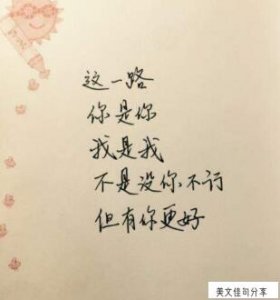 这一路
你是你
我是我
不是没你不行
但有你更好
美文佳句分享